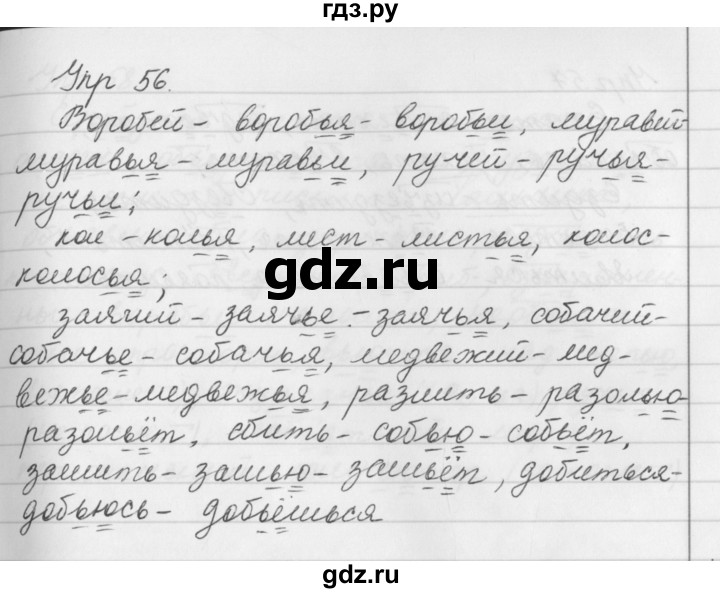 гдз.ру
Упр 56.
Воробей - воробья - воробьи, муравей-
муравья - муравьи, ручей - ручья-
ручьи;
кол - колья, лист - листья, колос-
колосья;
gdz.ru
заячий - заячье - заячья, собачий-
собачье - собачья, медвежий - мед-
вежье - медвежья, разлить - разолью-
разольёт, сбить - собью - собьёт,
зашить - зашью - зашьёт, добиться-
добьюсь - добьёшься
gdz.ru